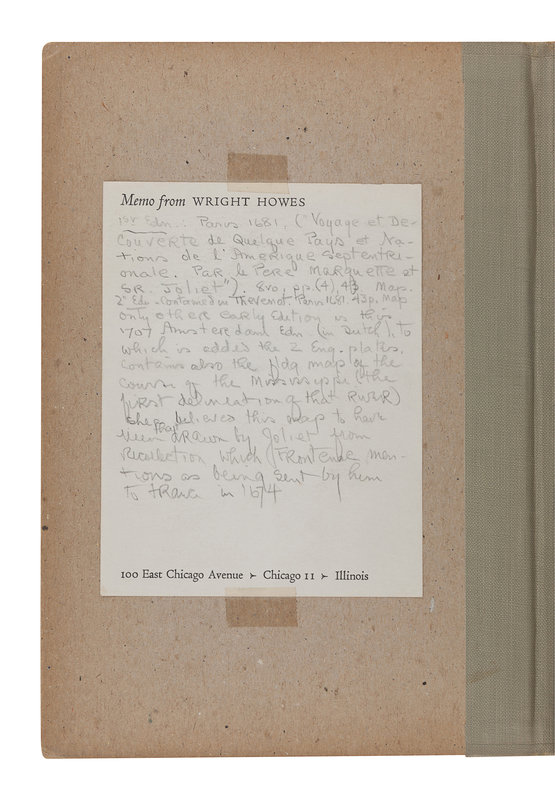 Memo from WRIGHT HOWES
1st Edn.: Paris 1681, ("Voyage et De-
couverte de Quelque Pays et Na-
tions de l'Amerique Septentri-
onale. Par le Pere Marquette et
SR. Joliet"). 8vo, pp. (4), 43 Map.
2d Edn - Contained in Thevenot Paris 1681. 43p. Map
only other early Edition is this
1707 Amsterdam Edn (in Dutch), to
which is added the 2 Eng. plates,
Contains also the fldg map of the
course of the Mississippi (the
first delineation of that River)
Shea believes this map to have
been drawn by Joliet from
Recollection which Frontenac men-
tions as being sent by him
to France in 1674
100 East Chicago Avenue ≻ Chicago 11 ≻ Illinois